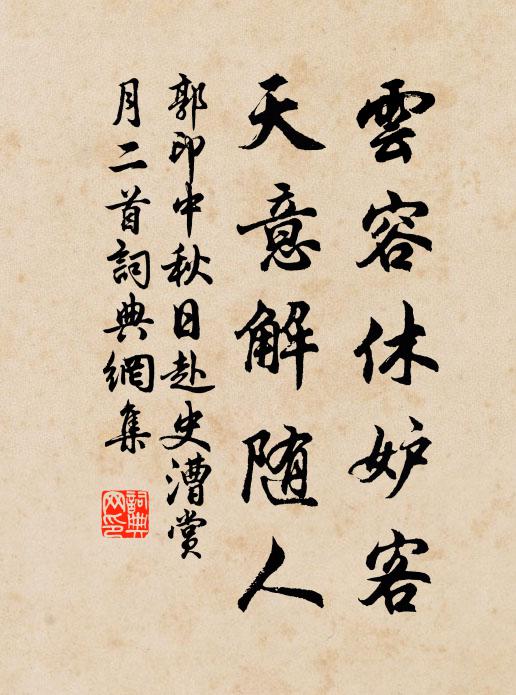 雲容休妒客
天意解随人
郭印中秋日赴史漕赏
月二首詞典網集
詞典网印